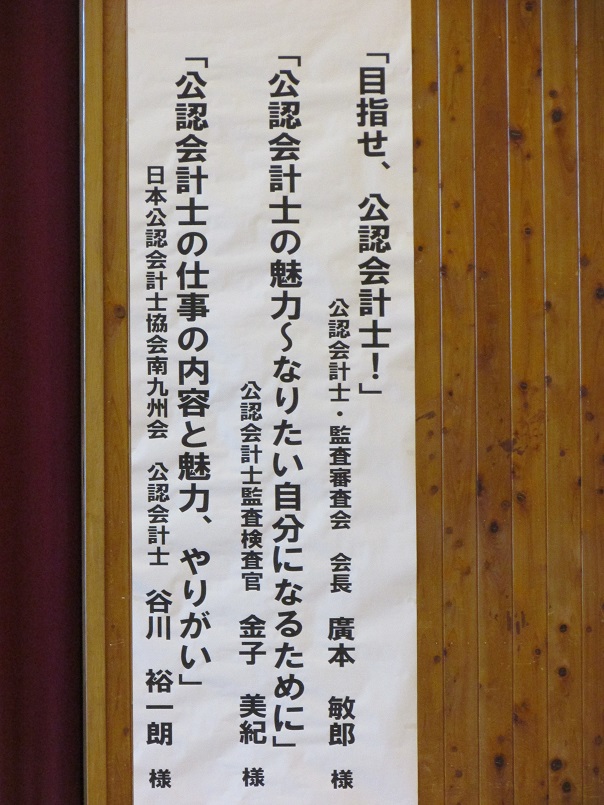 「目指せ、公認会計士！」
公認会計士・監査審査会　会長　廣本　敏郎　様
「公認会計士の魅力～なりたい自分になるために」
公認会計士監査検査官　金子　美紀　様
「公認会計士の仕事の内容と魅力、やりがい」
日本公認会計士協会南九州会　公認会計士　谷川　裕一朗　様